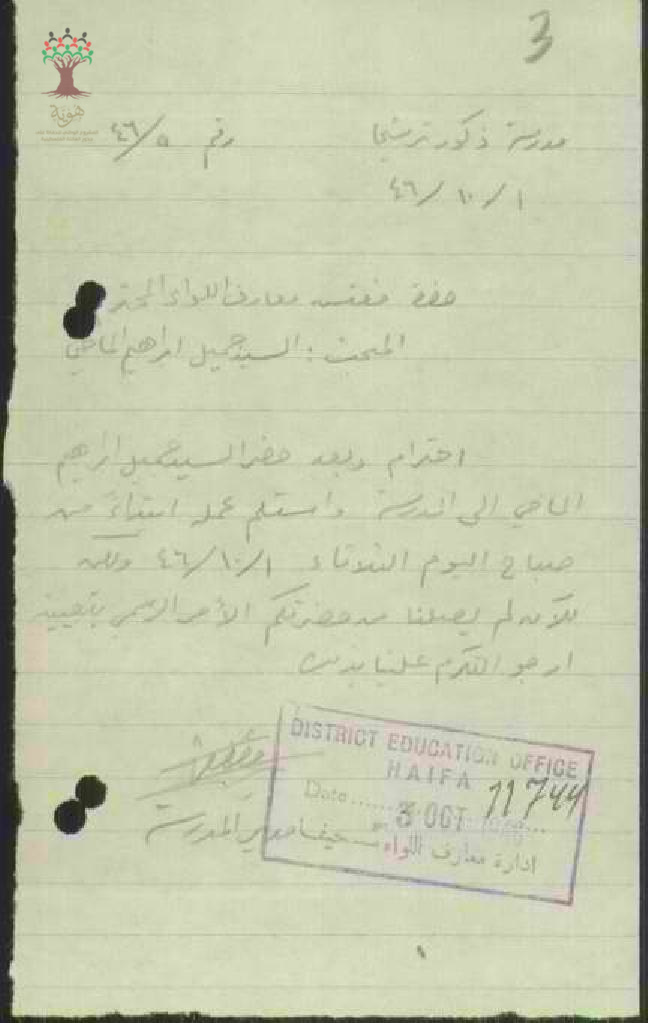 3
مدرسة ذكور ترشيحا رقم ٤٦/٥
٤٦/١٠/١
حضرة مفتش معارف اللواء المحترم
المبحث : السيد جميل ابراهيم الماضي
احترام وبعد حضر السيد جميل ابراهيم
الماضي الى المدرسة واستلم عمله ابتداءً من
صباح اليوم الثلاثاء ٤٦/١٠/١ ولكن
للآن لم يصلنا من حضرتكم الأمر الرسمي بتعيينه
ارجو التكرم علينا بذلك
مدير المدرسة
DISTRICT EDUCATION OFFICE
HAIFA
11744
Date 3 OCT 1946
ادارة معارف اللواء - حيفا